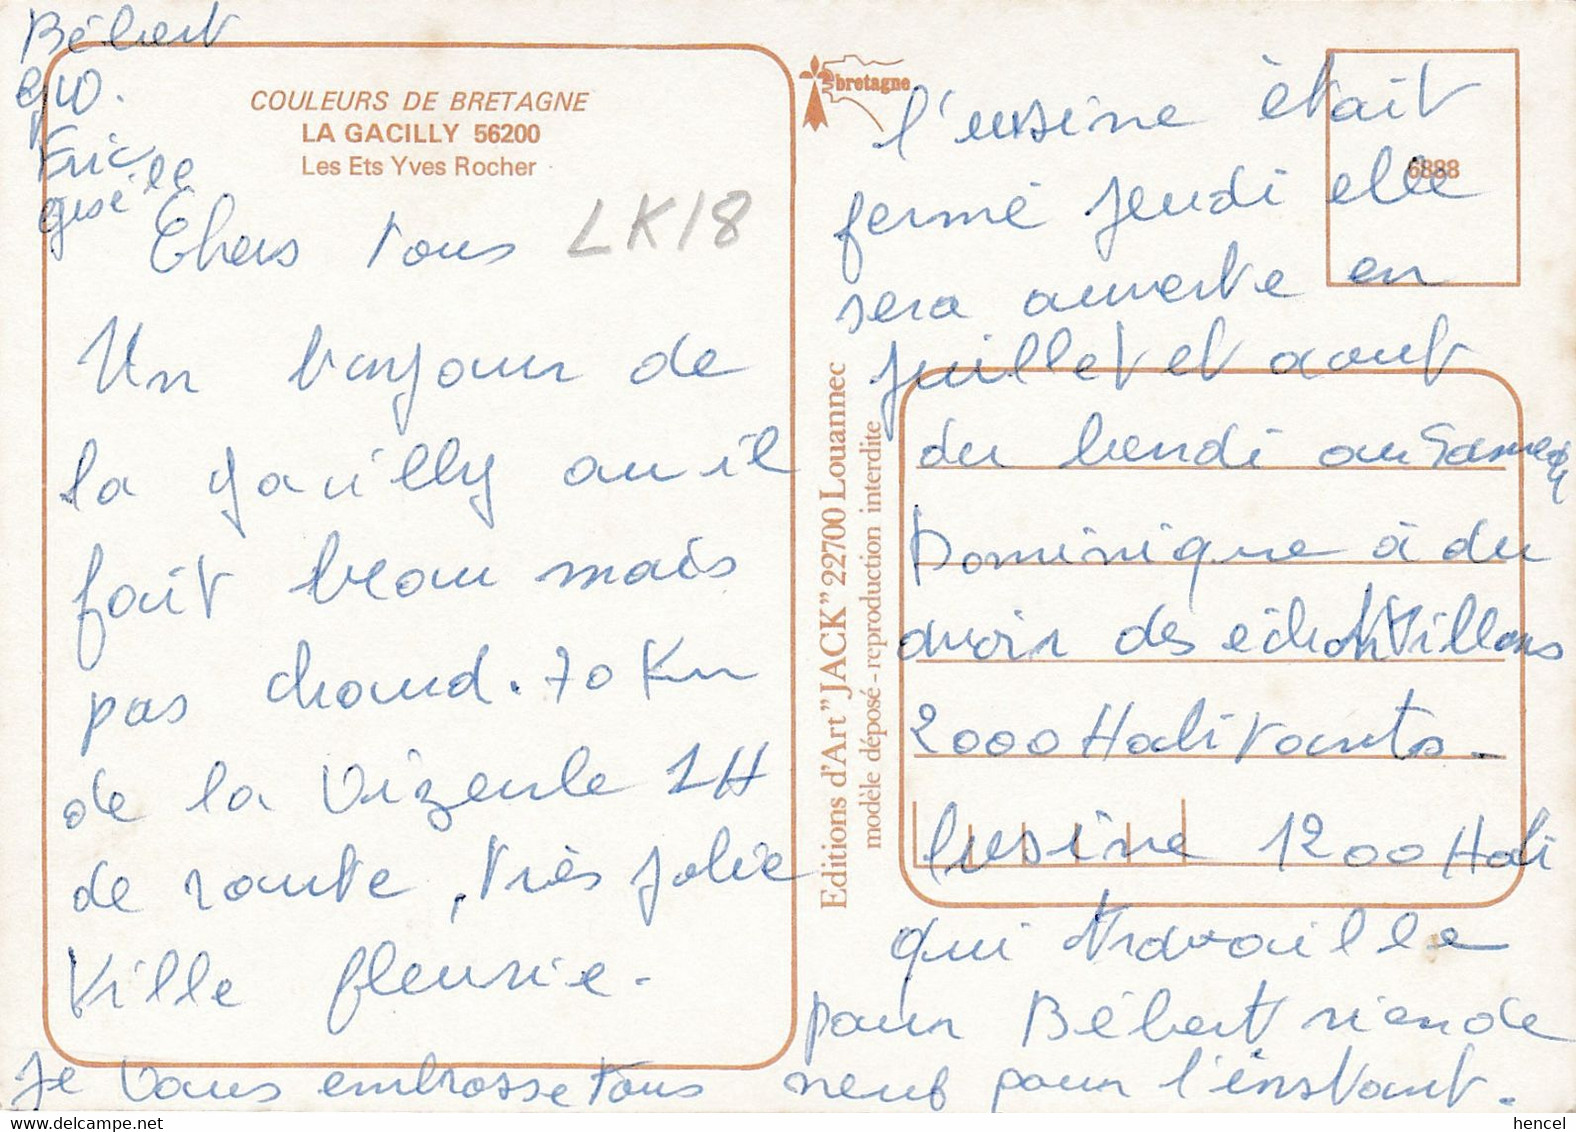 COULEURS DE BRETAGNE
LA GACILLY 56200
Les Ets Yves Rocher
LK18
Chers tous
Un bonjour de
la gacilly ou il
fait beau mais
pas chaud. 70 Km
de la Vizeule 1H
de route, très jolie
Ville fleurie.
bretagne
6888
l'usine était
fermé jeudi elle
sera ouverte en
juillet et aout
du lundi au Samedi
Dominique à du
avoir des échantillons
2000 Habitants -
l'usine 1200 Habi
qui travaille
pour Bébert rien de
neuf pour l'instant.
Je vous embrasse tous
Bébert
Eric
gisèle
Editions d'Art "JACK" 22700 Louannec
modèle déposé - reproduction interdite
hencel